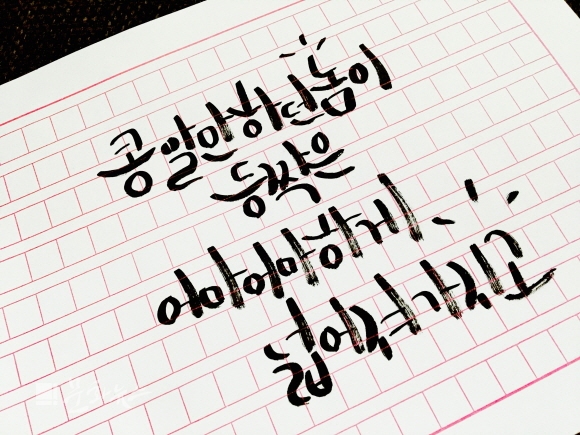 콩알만하던놈이
등짝은
어마어마하게
넓어져가지고